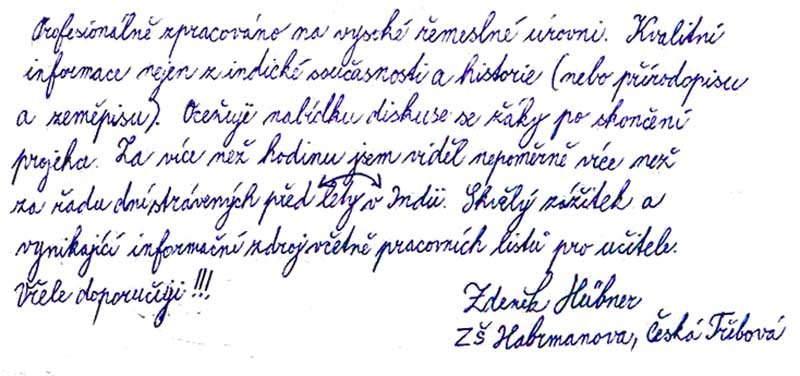 Profesionálně zpracováno na vysoké řemeslné úrovni. Kvalitní
informace nejen z indické současnosti a historie (nebo přírodopisu
a zeměpisu). Oceňuji nabídku diskuse se žáky po skončení
projekce. Za více než hodinu jsem viděl nepoměrně více než
za řadu dní strávených před lety v Indii. Skvělý zážitek a
vynikající informační zdroj včetně pracovních listů pro učitele.
Vřele doporučuji !!!
Zdeněk Hübner
ZŠ Habrmanova, Česká Třebová